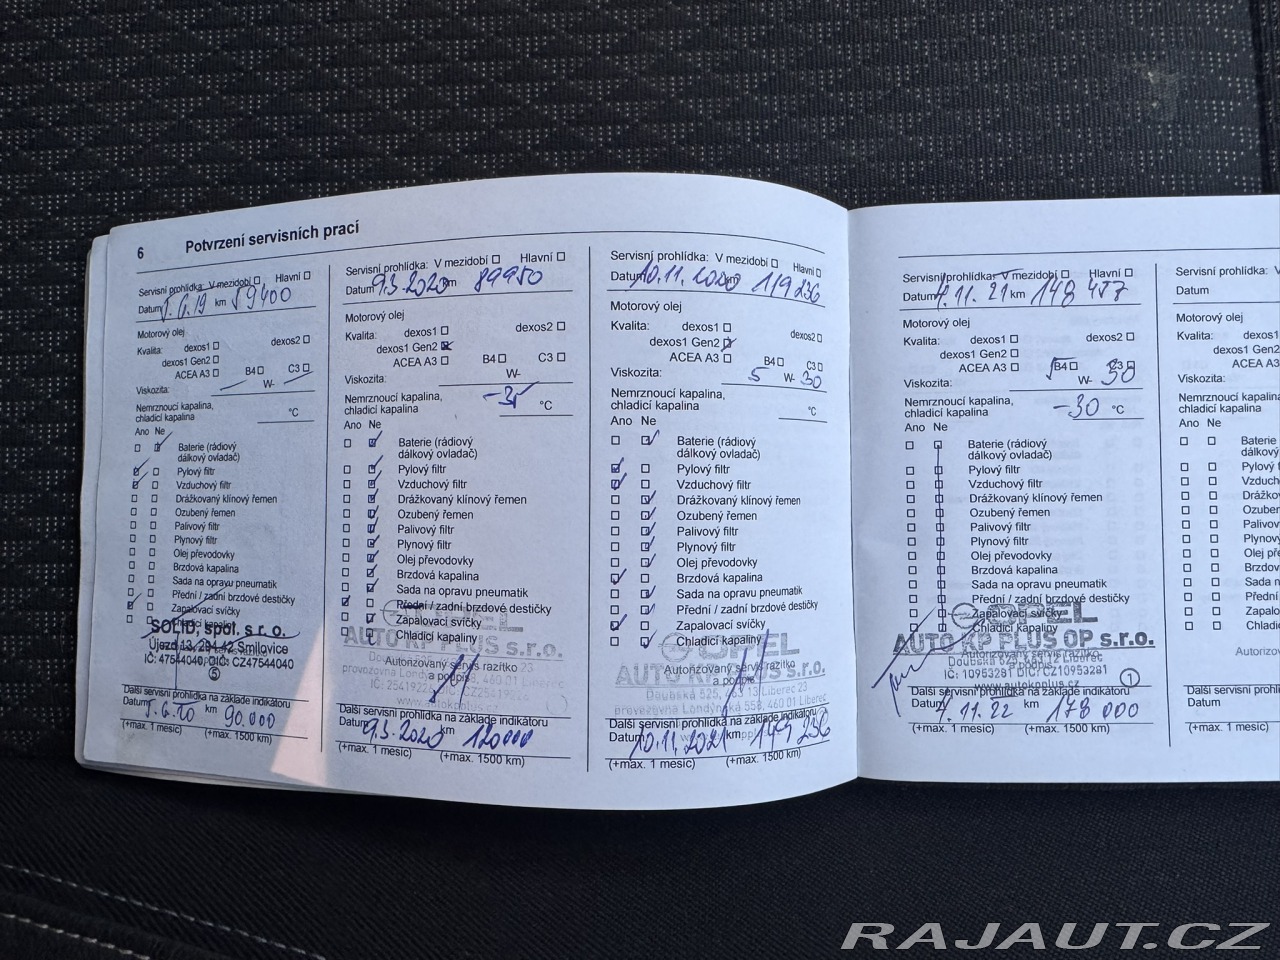 6 Potvrzení servisních prací
Servisní prohlídka: V mezidobí Hlavní
Datum 5.6.19 km 59400
Motorový olej
Kvalita: dexos1 dexos2
dexos1 Gen2
ACEA A3 B4 C3
Viskozita: W-
Nemrznoucí kapalina,
chladicí kapalina °C
Ano Ne
Baterie (rádiový
dálkový ovladač)
Pylový filtr
Vzduchový filtr
Drážkovaný klínový řemen
Ozubený řemen
Palivový filtr
Plynový filtr
Olej převodovky
Brzdová kapalina
Sada na opravu pneumatik
Přední / zadní brzdové destičky
Zapalovací svíčky
SOLID, spol. s r. o.
Újezd 13, 294 42 Smilovice
IČ: 47544040, DIČ: CZ47544040
5
Další servisní prohlídka na základě indikátoru
Datum 5.6.20 km 90.000
(+max. 1 měsíc) (+max. 1500 km)
Servisní prohlídka: V mezidobí Hlavní
Datum 9.3.2020 km 89950
Motorový olej
Kvalita: dexos1 dexos2
dexos1 Gen2
ACEA A3 B4 C3
Viskozita: W-
Nemrznoucí kapalina,
chladicí kapalina °C
Ano Ne
Baterie (rádiový
dálkový ovladač)
Pylový filtr
Vzduchový filtr
Drážkovaný klínový řemen
Ozubený řemen
Palivový filtr
Plynový filtr
Olej převodovky
Brzdová kapalina
Sada na opravu pneumatik
Přední / zadní brzdové destičky
Zapalovací svíčky
Chladicí kapaliny
OPEL
AUTO KP PLUS s.r.o.
Autorizovaný servis razítko
a podpis
Další servisní prohlídka na základě indikátoru
Datum 9.3.2020 km 120000
(+max. 1 měsíc) (+max. 1500 km)
Servisní prohlídka: V mezidobí Hlavní
Datum 10.11.2020 119236
Motorový olej
Kvalita: dexos1 dexos2
dexos1 Gen2
ACEA A3 B4 C3
Viskozita: 5 W- 30
Nemrznoucí kapalina,
chladicí kapalina °C
Ano Ne
Baterie (rádiový
dálkový ovladač)
Pylový filtr
Vzduchový filtr
Drážkovaný klínový řemen
Ozubený řemen
Palivový filtr
Plynový filtr
Olej převodovky
Brzdová kapalina
Sada na opravu pneumatik
Přední / zadní brzdové destičky
Zapalovací svíčky
Chladicí kapaliny
OPEL
AUTO KP PLUS s.r.o.
Autorizovaný servis razítko
a podpis
Doubská 525, 463 13 Liberec 23
provozovna Londýnská 558, 460 01 Liberec
Další servisní prohlídka na základě indikátoru
Datum 10.11.2021 km 149236
(+max. 1 měsíc) (+max. 1500 km)
Servisní prohlídka: V mezidobí Hlavní
Datum 4.11.21 km 148 457
Motorový olej
Kvalita: dexos1 dexos2
dexos1 Gen2
ACEA A3 B4 C3
Viskozita: 5 W- 30
Nemrznoucí kapalina,
chladicí kapalina -30 °C
Ano Ne
Baterie (rádiový
dálkový ovladač)
Pylový filtr
Vzduchový filtr
Drážkovaný klínový řemen
Ozubený řemen
Palivový filtr
Plynový filtr
Olej převodovky
Brzdová kapalina
Sada na opravu pneumatik
Přední / zadní brzdové destičky
Zapalovací svíčky
Chladicí kapaliny
OPEL
AUTO KP PLUS OP s.r.o.
IČ: 10953281 DIČ: CZ10953281
www.autokpplus.cz
1
Další servisní prohlídka na základě indikátoru
Datum 4.11.22 km 178 000
(+max. 1 měsíc) (+max. 1500 km)
Servisní
Datum
Motorový olej
Kvalita:
dexos1
ACEA
Viskozita:
Nemrznoucí kapalina,
chladicí kapalina
Ano Ne
Další servisní
Datum
(+max. 1
RAJAUT.CZ